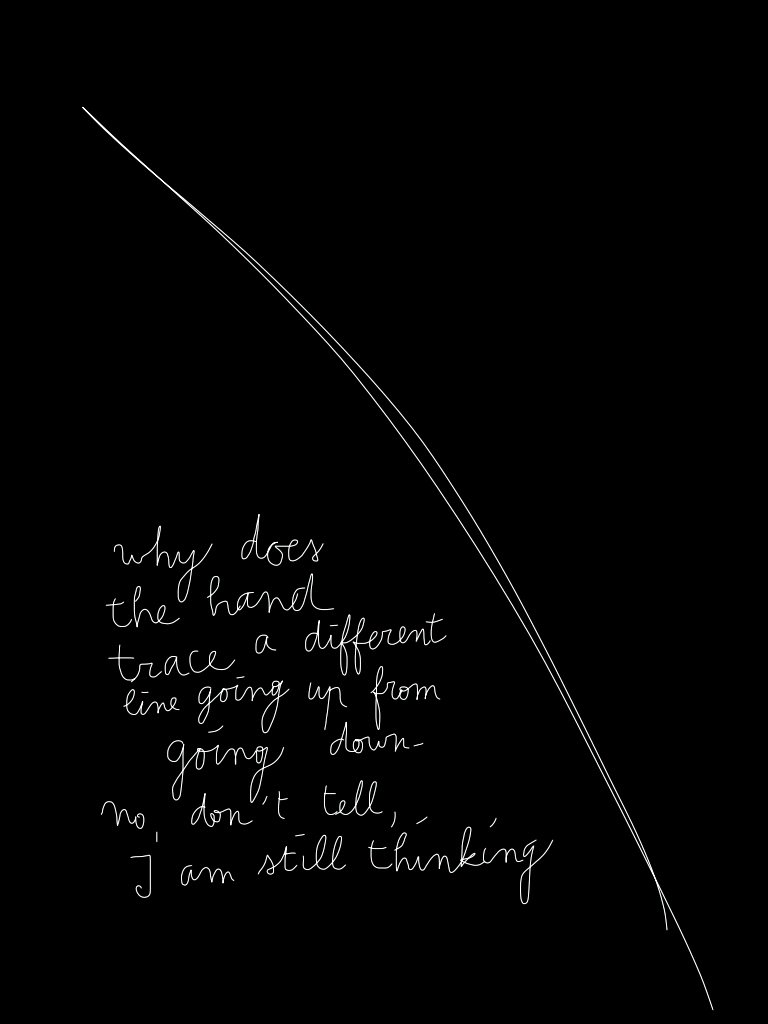 why does
the hand
trace a different
line going up from
going down-
no, don't tell,
I am still thinking